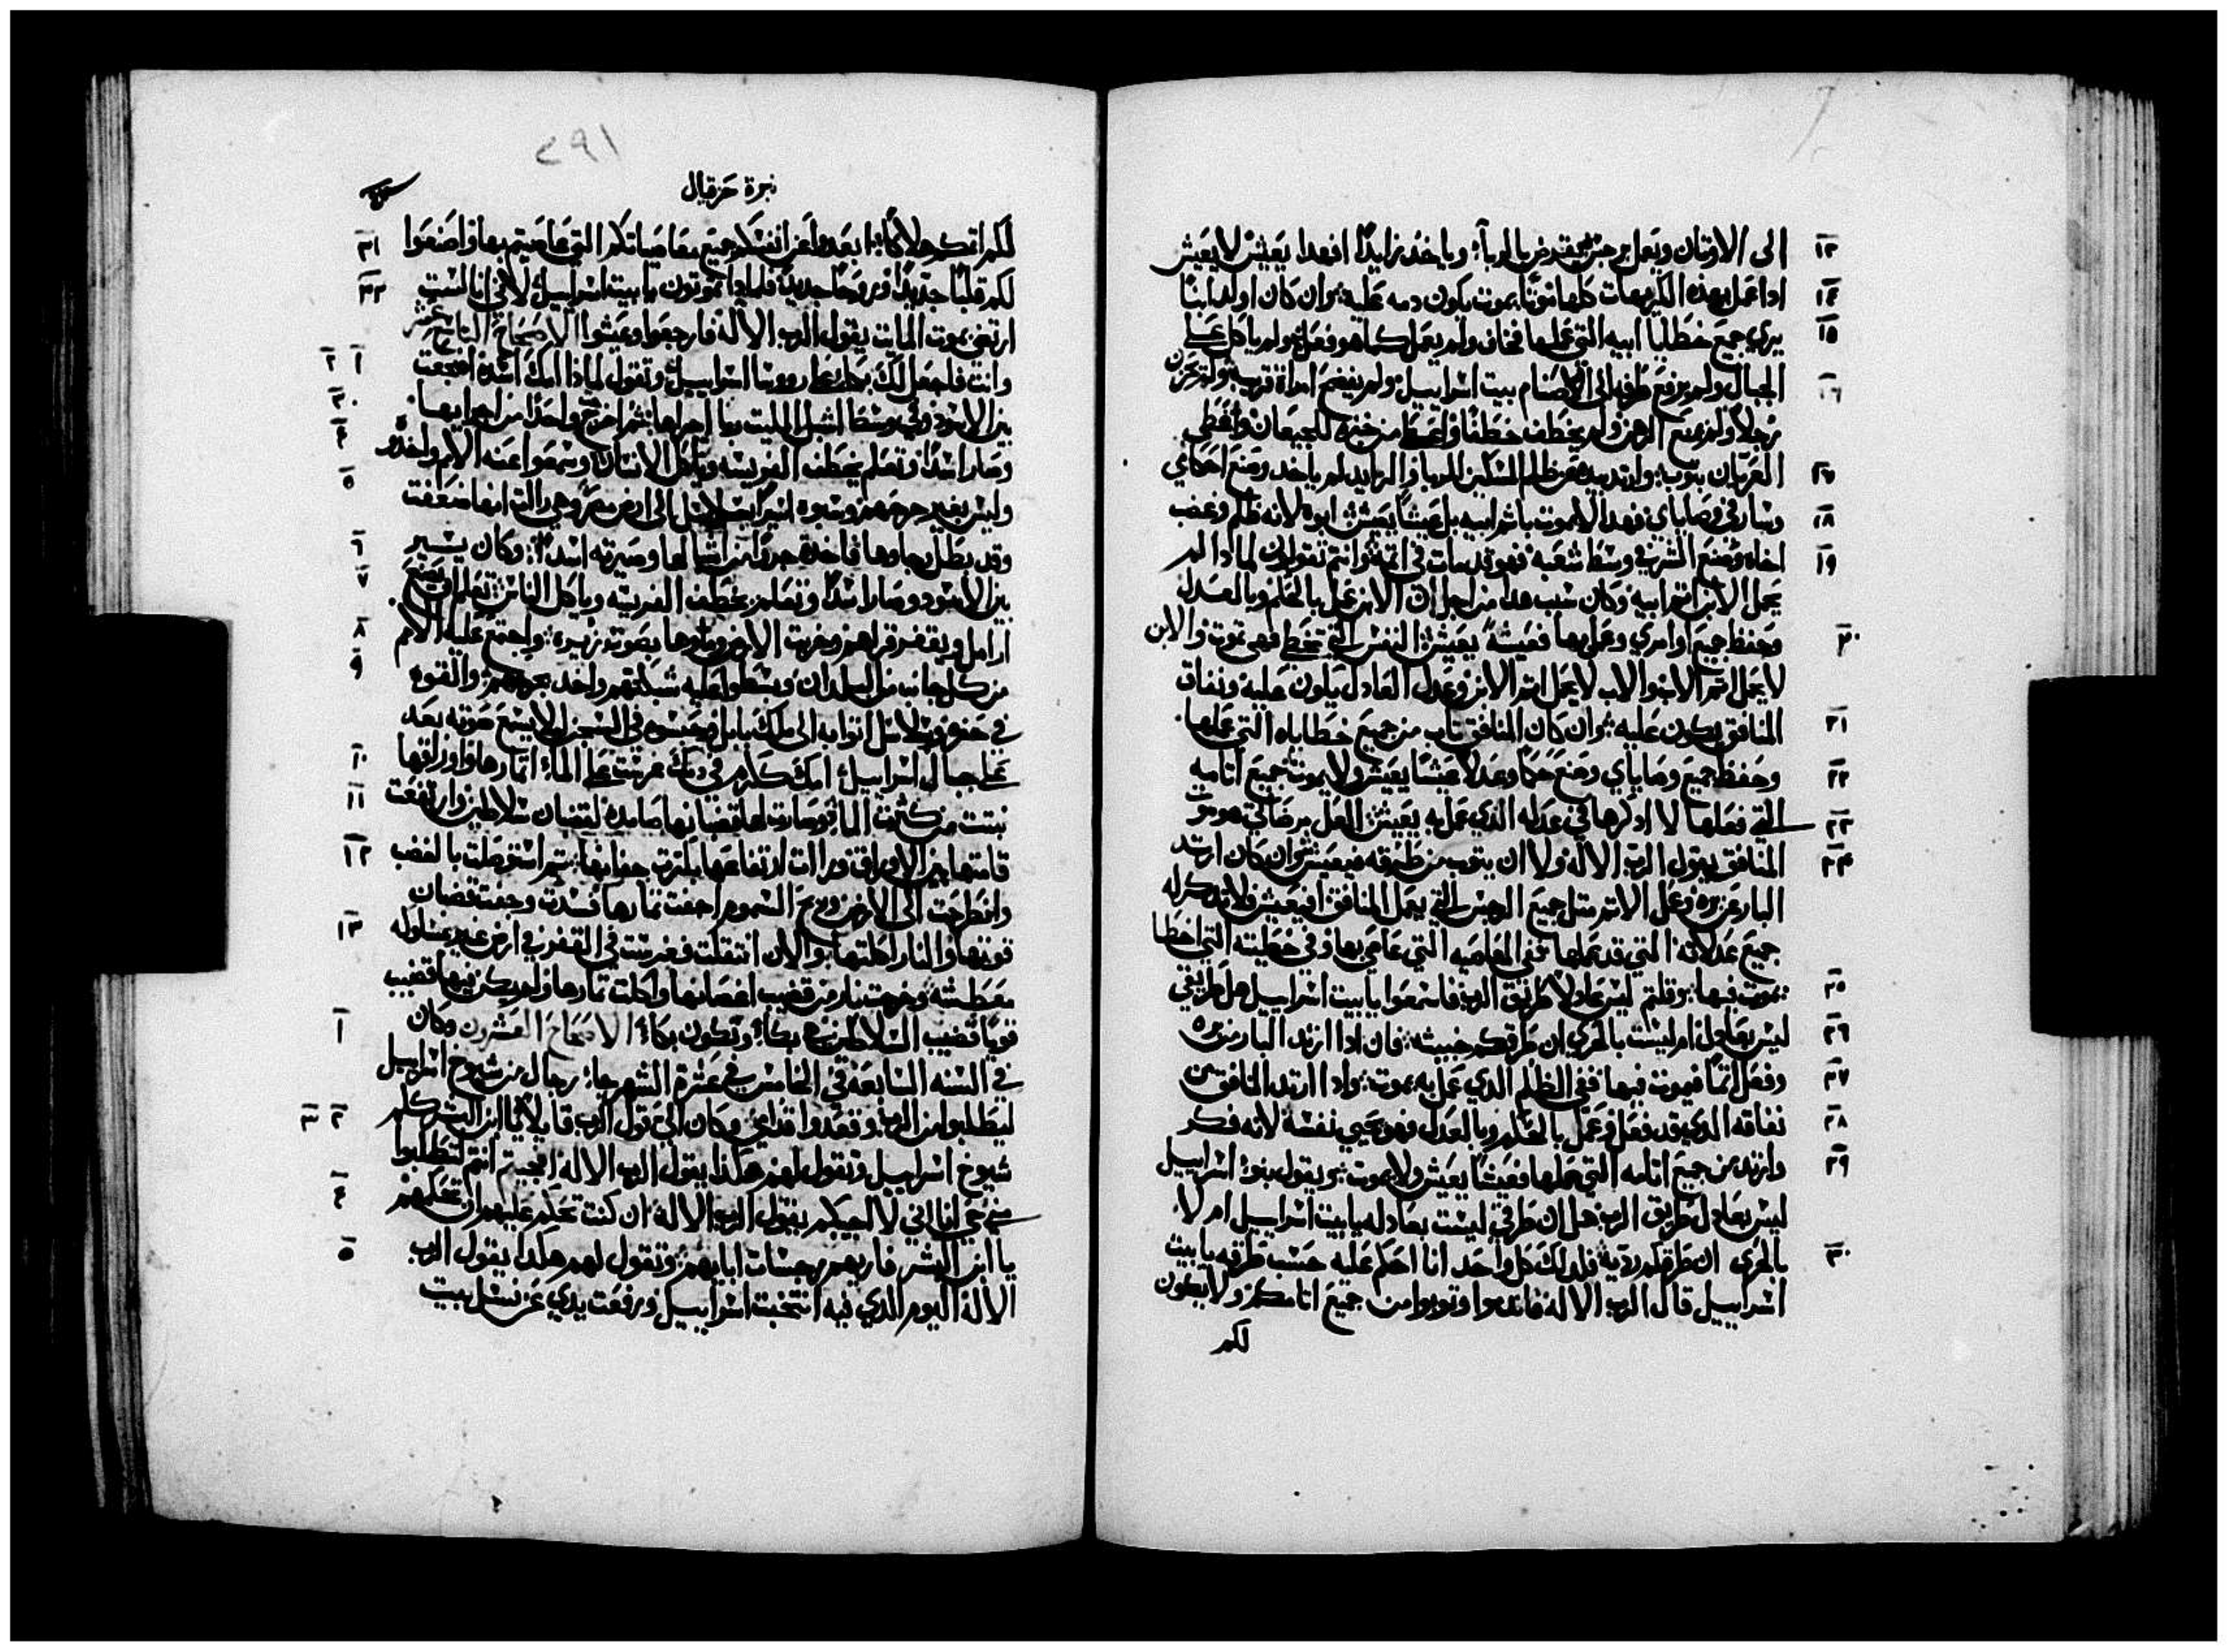 ١٣ الى الاوتان ويعل رجز يقرض بالربا ؛ وياخد زايدًا افهدا يعيش لا يعيش
١٤ ادا عمل بهده الكريهات كلها موتًا يموت يكون دمه عليه ؛ وان كان اولد ابنًا
١٥ يري جميع خطايا ابيه التي عملها فخاف ولم يعمل كما هو فعل ؛ ولم ياكل على
١٦ الجبال ولم يرفع طرفه الى اصنام بيت اسراييل ؛ ولم يفضح امراة قريبه ولم يحزن
رجلاً ولم يمنع الرهن ولم يخطف خطفًا واعطا من خبزه للجيعان وغطي
١٧ العريان بتوب ؛ وارتد بيده عن ظلم المسكين الربا والزايد لم ياخد وصنع احكاي
١٨ وسار في وصاياي فهدا لا يموت باتم ابيه بل عيشًا يعيش ؛ ابوه لانه ظلم وغضب
١٩ اخاه وصنع الشر في وسط شعبه فهو قد مات في اتمه ؛ وانتم تقولون لمادا لم
يحمل الابن اتم ابيه وكان سبب هدا من اجل ان الابن عمل بالحكم وبالعدل
٢٠ وحفظ جميع اوامري وعمل بها فعيشةً يعيش ؛ النفس التي تخطي فهي تموت والابن
لا يحمل اتم الاب والاب لا يحمل اتم الابن وعدل العادل يكون عليه ونفاق
٢١ المنافق يكون عليه ؛ وان كان المنافق تاب من جميع خطاياه التي عملها
٢٢ وحفظ جميع وصاياي وصنع حكمًا وعدلاً عيشًا يعيش ولا يموت جميع اتامه
٢٣ التي فعلها لا ادكرها في عدله الدي عمل به يعيش ؛ العل مرضاتي هو موت
٢٤ المنافق يقول الرب الاله ولا ان يتوب من طرقه فيعيش ؛ وان كان ارتد
البار عن بره وعمل الاتم متل جميع الرجس التي يعمل المنافق افيعيش فلا تدكر له
جميع عدلاته التي قد عملها ففي المعاصيه التي عاصي بها وفي خطيته التي اخطا
٢٥ يموت فيها ؛ وقلتم ليس عادلاً طريق الرب فاسمعوا يا بيت اسراييل هل طريقي
٢٦ ليس بعادل ام ليست بالحري ان طرقكم خبيثه ؛ فان ادا ارتد البار من بره
٢٧ وفعل اتمًا فيموت فيها ففي الظلم الدي عمل به يموت ؛ وادا ارتد المنافق من
٢٨ نفاقه الدي قد فعل وعمل بالحكم وبالعدل فهو يحيي نفسه لانه فكر
٢٩ وارتد من جميع اتامه التي عملها فعيشًا يعيش ولا يموت ؛ ويقول بنو اسراييل
ليس بعادل طريق الرب هل ان طرقي ليست بعادله يا بيت اسراييل ام لا
٣٠ بالحري ان طرقكم رديه ؛ فلدلك كل واحد انا احكم عليه حسب طرقه يا بيت
اسراييل قال الرب الاله فاندموا وتوبوا من جميع اتامكم ولا يكون
لكم
٢٩١
نبوة حزقيال
٣١ لكم اتمكم هلاكًا ؛ ابعدوا عن انفسكم جميع معاصياتكم التي عاصيتم بها واصنعوا
٣٢ لكم قلبًا جديدًا وروحًا جديدة فلمادا تموتون يا بيت اسراييل ؛ لاني انا لست
ارتضي بموت المايت يقول الرب الاله فارجعوا وعيشوا الاصحاح التاسع عشر
١ ٢ وانت فاجعل لك بكا علي رووسا اسراييل ؛ وتقول لمادا امك اسدة اضجعت
٣ بين الاسود وفي وسط اشبل الليت ربا اجراها ؛ تم اخرج واحدًا من اجرايها
٤ وصار اسدًا وتعلم يخطف الفريسه وياكل الانسان ؛ وسمعوا عنه الامم واخدوه
٥ وليس بغير جرحهم وسبوه اسيرًا بسلاسل الى ارض مصر ؛ وهي رات انها ضعفت
٦ وقد بطل رجاوها فاخدة جروًا من اشبالها وصيرته اسدًا ؛ وكان يسير
٧ بين الاسود وصار اسدًا وتعلم يخطف الفريسه وياكل الناس ؛ تعلم ان يصنع
٨ ارامل ويقفر قراهم وخربت الارض وملوها بصوت زييره ؛ واجتمع عليه الامم
٩ من كل جانب من البلدان وبسطوا عليه شبكتهم واخد بجرحهم ؛ والقوه
في حفره وبسلاسل اتوا به الى ملك بابل وحبسوه في السجن ليلا يسمع صوته بعد
١٠ على جبال اسراييل ؛ امك ككرم في دمك غرست على الماء اتمارها واوراقها
١١ نبتت من كثرت الماء ؛ وصارت لها قضبانها صامده لقضبان سلاطين وارتفعت
١٢ قامتها بين الاوراق ورات ارتفاعها بكثرت جفانها ؛ تم استوصلت بالغضب
وانطرحت الى الارض وريح السموم اجفت تمارها فسدت وجفت قضبان
١٣ قوتها والنار اكلتها ؛ والان انتقلت فغرست في القفر في ارض غير مسلوكه
معطشه وخرجت نار من قضيب اغصانها واكلت تمارها ولم يكن فيها قضيب
١ قويًا قضيب السلاطين هي بكاء ؛ وتكون بكاء ؛ الاصحاح العشرون وكان
في السنه السابعه في الخامس في عشرة الشهر جاء رجال من شيوخ اسراييل
٢ ٣ ليطلبوا من الرب وقعدوا قدامي ؛ وكان اليّ قول الرب قايلاً ؛ يا ابن البشر كلم
شيوخ اسراييل وتقول لهم هكدا يقول الرب الاله افجيتم انتم لتطلبوا
٤ مني حي انا اني لا اجيبكم يقول الرب الاله ؛ ان كنت تحكم عليهم ان تحكمهم
٥ يا ابن البشر فاريهم رجسات ابايهم ؛ وتقول لهم هكدا يقول الرب
الاله اليوم الدي فيه انتخبت اسراييل ورفعت يدي عن نسل بيت